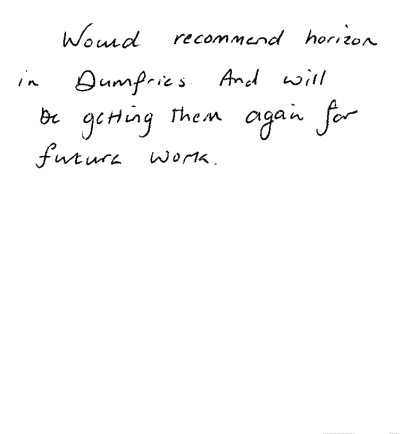 Would recommend horizon
in Dumfries. And will
be getting them again for
future work.